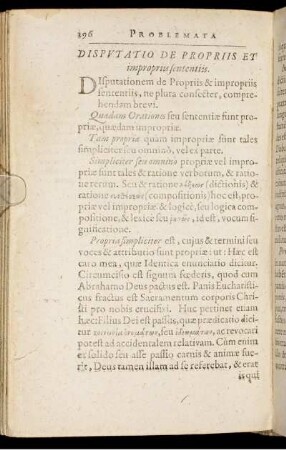 396 PROBLEMATA
DISPVTATIO DE PROPRIIS ET
impropriis sententiis.
DIsputationem de Propriis & impropriis
sententiis, ne plura consecter, compre-
hendam brevi.
Quædam Orationes seu sententiæ sunt pro-
priæ, quædam impropriæ.
Tam propriæ quam impropriæ sunt tales
simpliciter seu omninò, vel ex parte.
Simpliciter seu omninò propriæ vel impro-
priæ sunt tales & ratione verborum, & ratio-
ne rerum. Seu & ratione (dictionis) &
ratione (compositionis) hoc est, pro-
priæ vel impropriæ & logicè, seu logica com-
positione, & lexicè seu id est, vocum si-
gnificatione.
Propria simpliciter est, cujus & termini seu
voces & attributio sunt propriæ: ut: Hæc est
caro mea, quæ Identica enunciatio dicitur.
Circumcisio est signum fœderis, quod cum
Abrahamo Deus pactus est. Panis Eucharisti-
cus fractus est Sacramentum corporis Chri-
sti pro nobis crucifixi. Huc pertinet etiam
hæc: Filius Dei est passus, quæ prædicatio dici-
tur seu ac revocari
potest ad accidentalem relativam. Cùm enim
ex solido seu asse passio carnis & animæ fue-
rit, Deus tamen illam ad se referebat, & erat
is qui